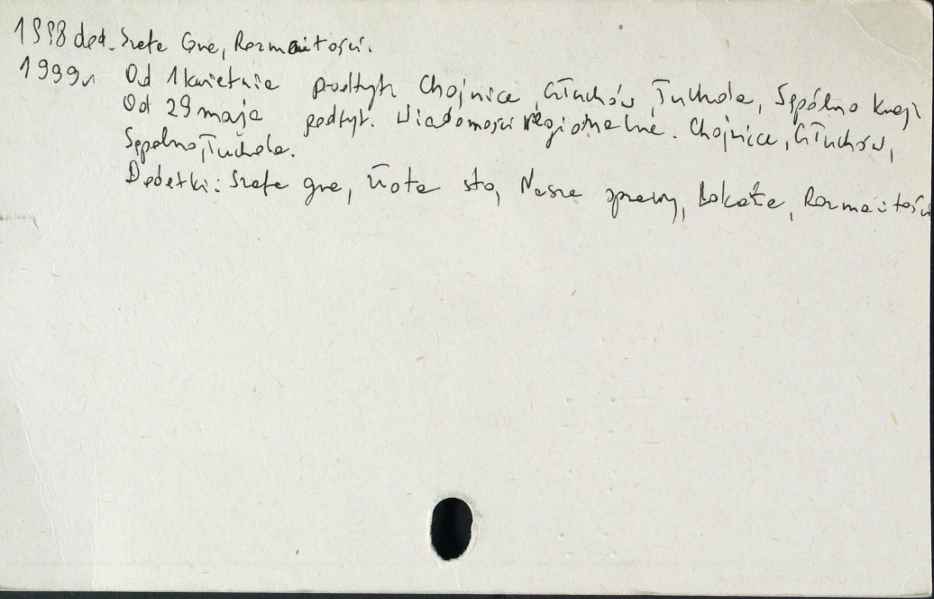 1998 dod. Szefe Gre, Rozmaitości.
1999r. Od 1 kwietnia podtyt. Chojnice, Człuchów, Tuchola, Sępólno Kraj.
Od 29 maja podtyt. Wiadomości regionalne. Chojnice, Człuchów,
Sępólno, Tuchola.
Dodatki: Szafa gra, Złota sto, Nasze sprawy, Rozmaitości